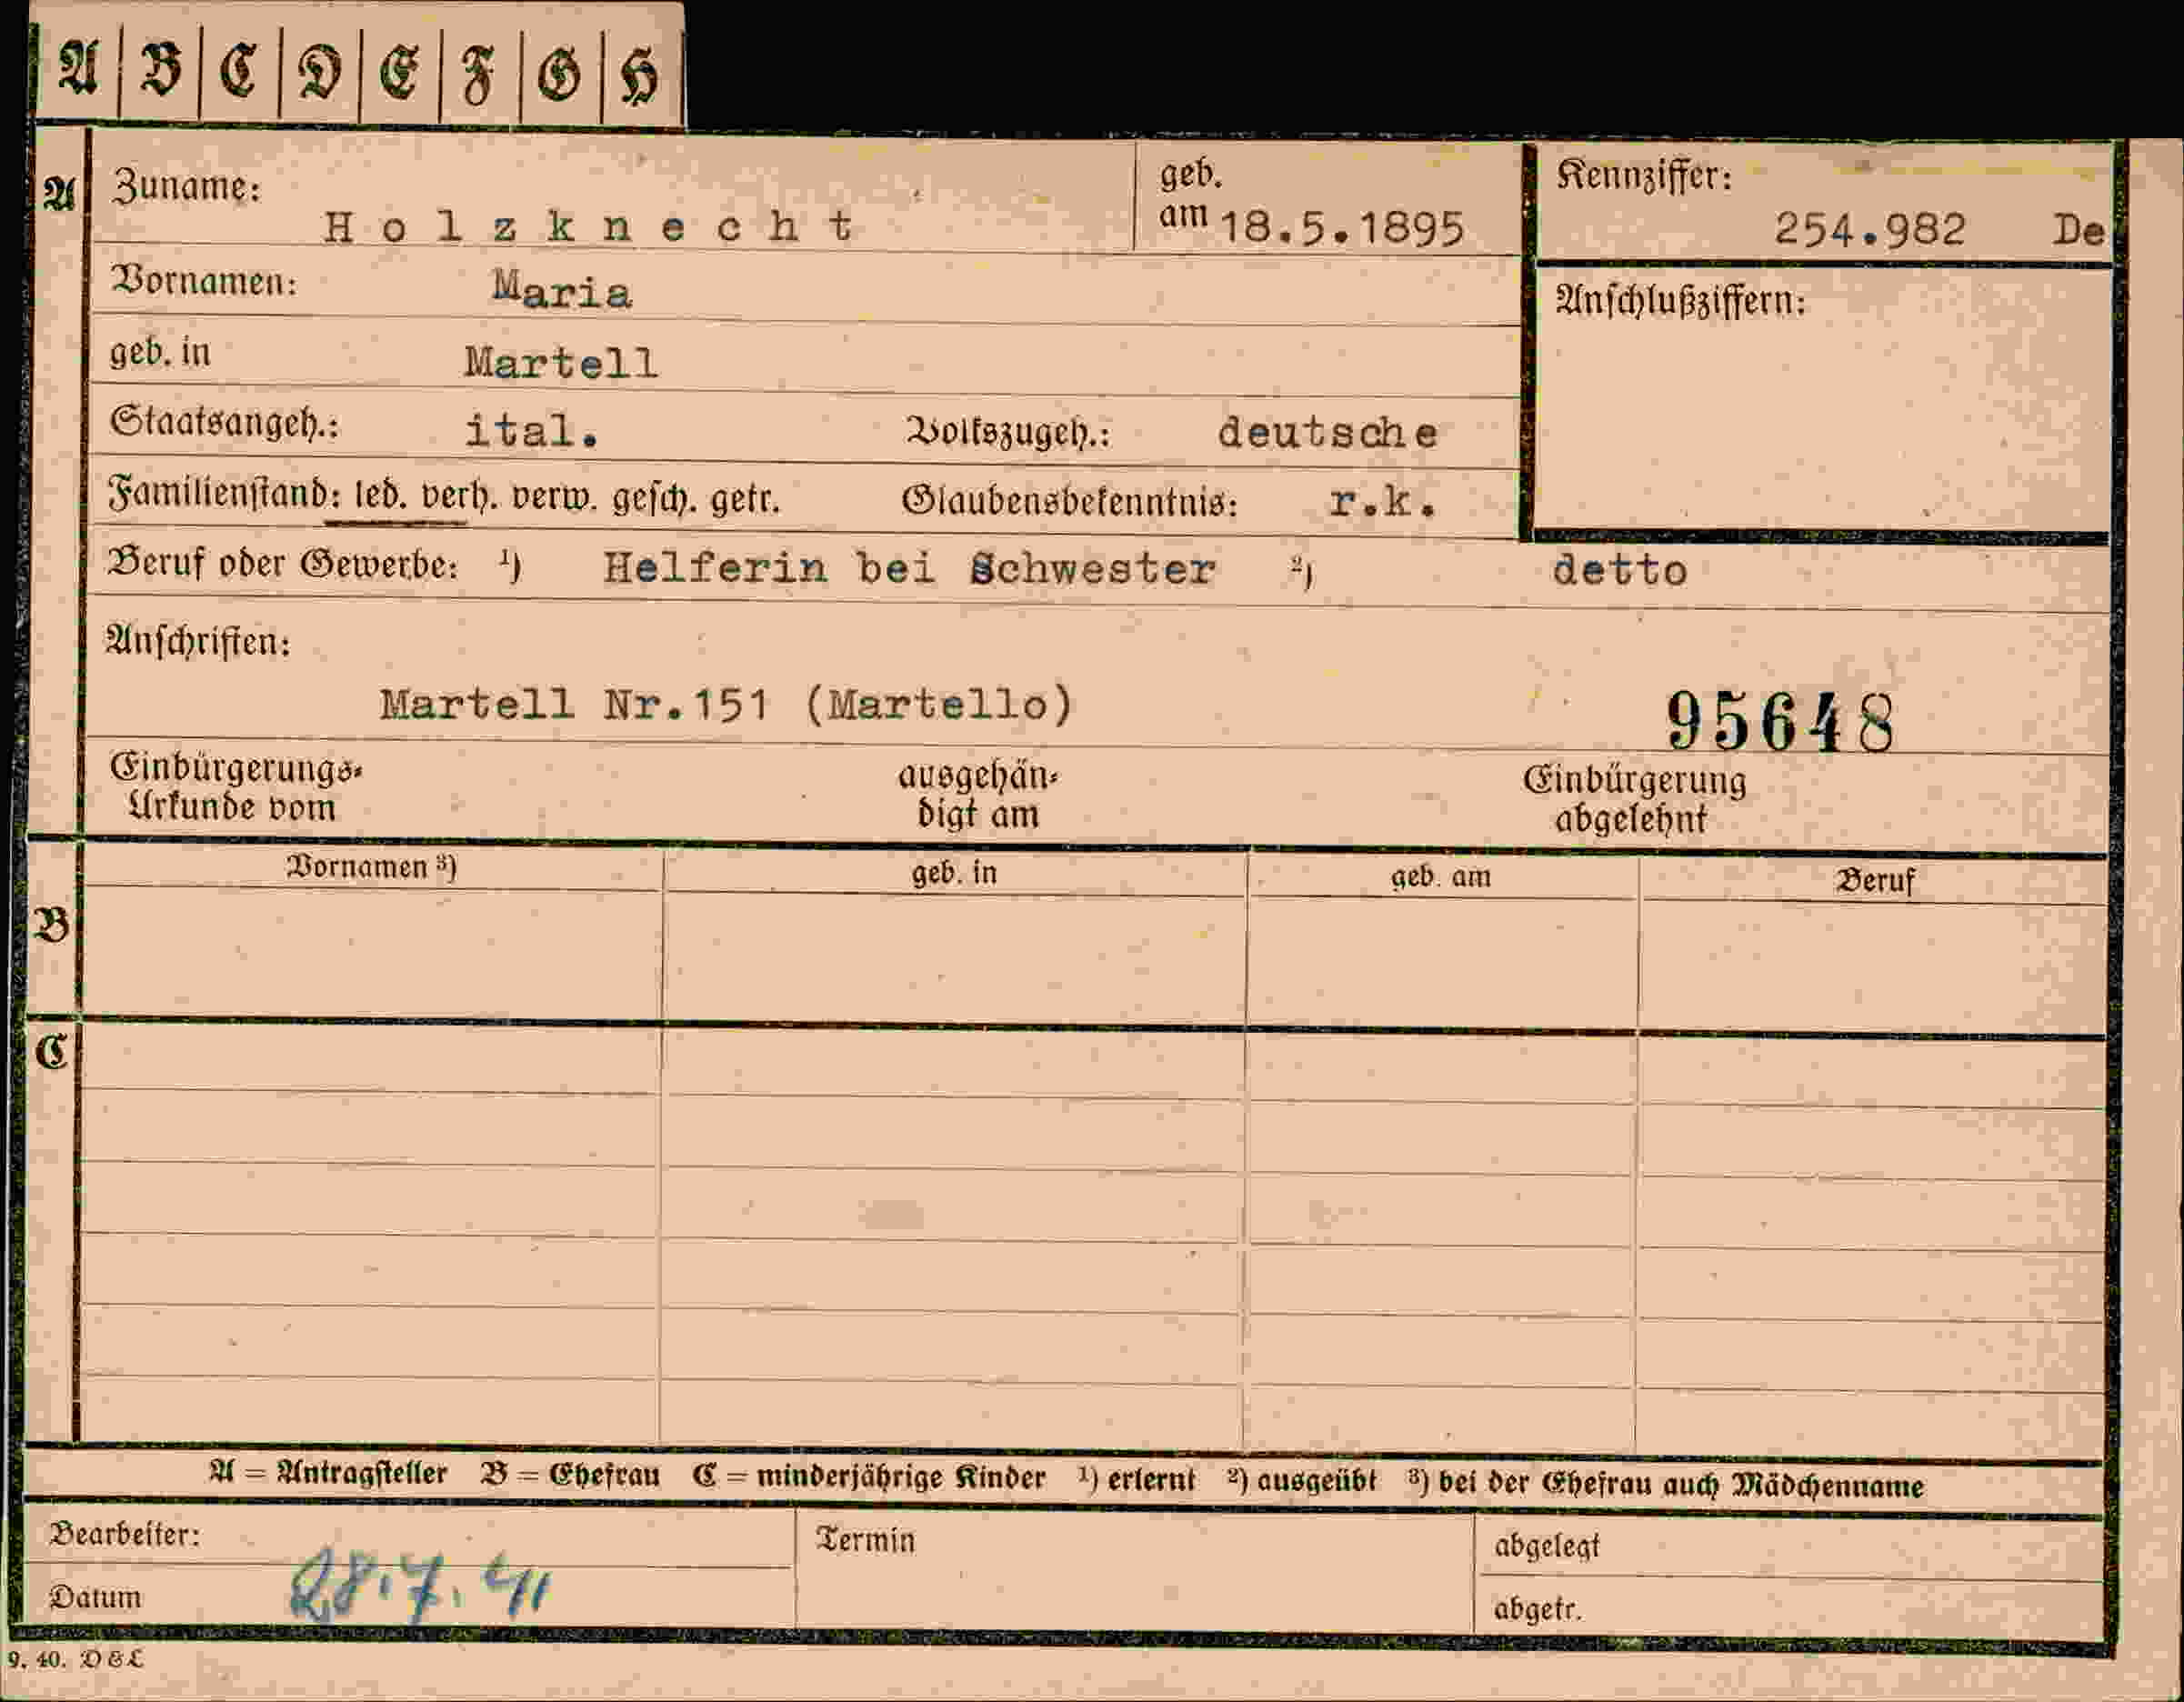 A B C D E F G H
A Zuname: Holzknecht geb. am 18.5.1895 Kennziffer: 254.982 De
Vornamen: Maria Anschlußziffern:
geb. in Martell
Staatsangeh.: ital. Volkszugeh.: deutsche
Familienstand: led. verh. verw. gesch. getr. Glaubensbekenntnis: r.k.
Beruf oder Gewerbe: ¹) Helferin bei Schwester ²) detto
Anschriften:
Martell Nr.151 (Martello) 95648
Einbürgerungs- ausgehän- Einbürgerung
Urkunde vom digt am abgelehnt
Vornamen ³) geb. in geb. am Beruf
B
C
A = Antragsteller B = Ehefrau C = minderjährige Kinder ¹) erlernt ²) ausgeübt ³) bei der Ehefrau auch Mädchenname
Bearbeiter: Termin abgelegt
Datum 28.7.41 abgetr.
9. 40. D & L